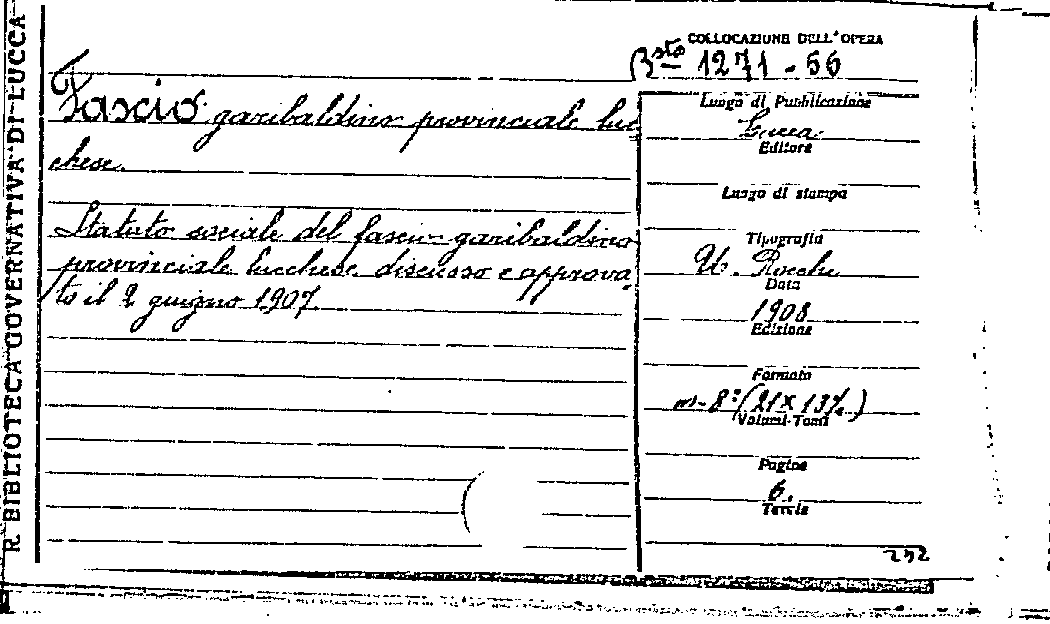 R. BIBLIOTECA GOVERNATIVA DI LUCCA
COLLOCAZIONE DELL'OPERA
Bsta 1271 - 56
Fascio garibaldino provinciale luc
chese.
Statuto sociale del fascio garibaldino
provinciale lucchese discusso e approva-
to il 2 giugno 1907.
Luogo di Pubblicazione
Lucca
Editore
Luogo di stampa
Tipografia
U. Rocchi
Data
1908
Edizione
Formato
in-8° (21 x 13½)
Volumi-Tomi
Pagine
6.
Tavole